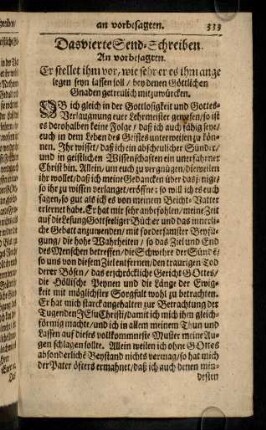 an vorbesagten. 333
Das vierte Send-Schreiben
An vorbesagten.
Er stellet ihm vor, wie sehr er es ihm ange
legen seyn lassen soll / bey denen Göttlichen
Gnaden getreulich mitzuwürcken.
OB ich gleich in der Gottlosigkeit und Gottes-
Verlaugnung euer Lehrmeister gewesen, so ist
es derohalben keine Folge / daß ich auch fähig seye /
euch in dem Leben des Geistes unterweisen zu kön-
nen. Ihr wisset / daß ich ein abscheulicher Sünder /
und in geistlichen Wissenschafften ein unerfahrner
Christ bin. Allein, um euch zu vergnügen, dieweilen
ihr wollet / daß ich meine Gedancken über das / was
ihr zu wissen verlanget, eröffne: so will ich es euch
sagen, so gut als ich es von meinem Beicht-Vatter
erlernet habe. Er hat mir sehr anbefohlen / meine Zeit
auf die Lesung Gottseeliger Bücher und das innerliche
Gebätt anzuwenden, mit sonderbarster Beysor-
gung, die hohe Wahrheiten / so das Ziel und End
des Menschen betreffen, die Schwehre der Sünde /
so uns von diesem Ziel entfernen, den traurigen Tod
derer Bösen / das erschröckliche Gericht GOttes /
die Höllische Peynen und die Länge der Ewig-
keit mit möglichster Sorgfalt wohl zu betrachten.
Er hat mich starck angehalten zur Betrachtung der
Tugenden JEsu Christi / damit ich mich ihm gleich-
förmig machte / und ich in allem meinem Thun und
Lassen auf dieses vollkommneste Muster meine Au-
gen schlagen sollte. Allein weilen ich ohne GOttes
absonderliche Beystand nichts vermag / so hat mich
der Pater öfters ermahnet / daß ich auch denen min-
desten